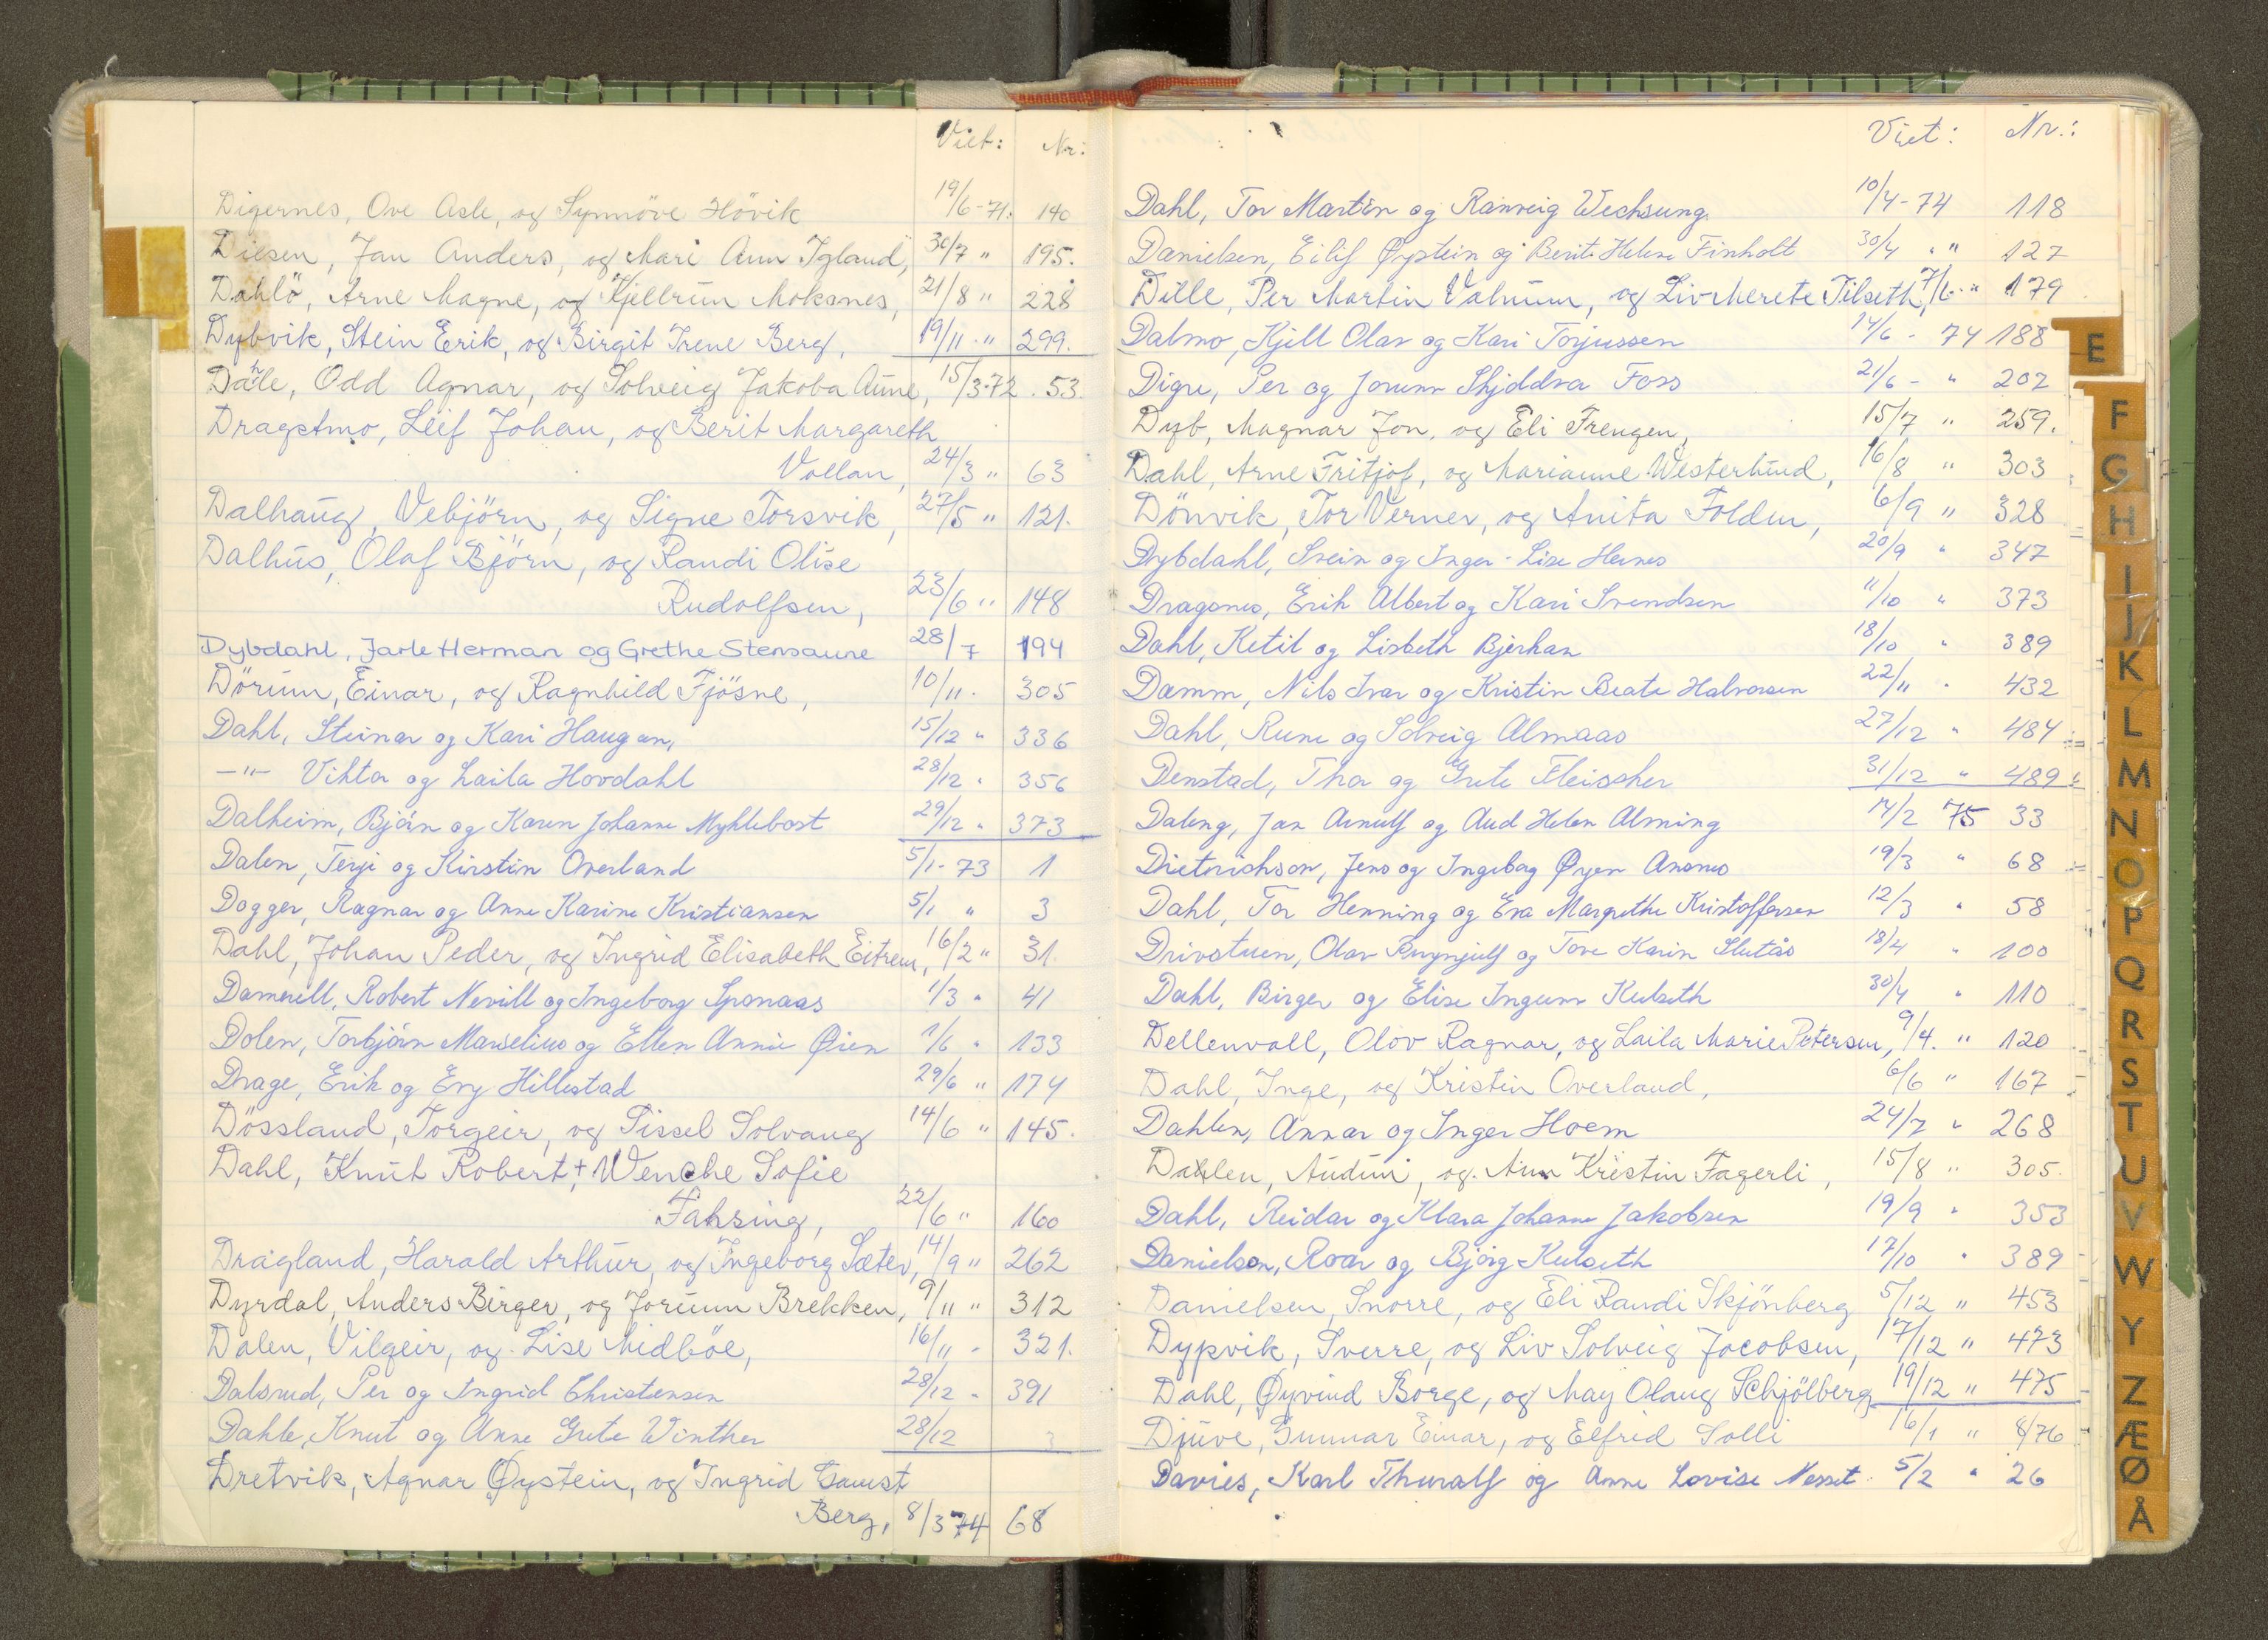 Viet: Nr:
Digernes, Ove Asle, og Synnöve Hövik 19/6-71. 140
Diesen, Jan Anders, og Mari Ann Igland, 30/7 " 195.
Dahlö, Arne Magne, og Kjellrun Moksnes, 21/8 " 228
Dybvik, Stein Erik, og Birgit Irene Berg, 19/11 " 299.
Dahle, Odd Agnar, og Solveig Jakoba Aune, 15/3-72. 53.
Dragstmo, Leif Johan, og Berit Margareth
Vollan, 24/3 " 63
Dalhaug, Vebjörn, og Signe Torsvik, 27/5 " 121.
Dalhus, Olaf Björn, og Randi Olise
Rudolfsen, 23/6 " 148
Dybdahl, Jarle Herman og Grethe Stensaune 28/7 194
Dörum, Einar, og Ragnhild Fjösne, 10/11. 305
Dahl, Steinar og Kari Haugan, 15/12 " 336
—"— Viktor og Laila Hovdahl 28/12 " 356
Dalheim, Björn og Karen Johanne Myklebost 29/12 " 373
Dalen, Terje og Kirstin Overland 5/1-73 1
Dogger, Ragnar og Anne Karine Kristiansen 5/1 " 3
Dahl, Johan Peder, og Ingrid Elisabeth Eitrem, 16/2 " 31.
Damerell, Robert Nevill og Ingeborg Sponaas 1/3 " 41
Dolen, Torbjörn Marselius og Ellen Annie Øien 1/6 " 133
Drage, Erik og Eny Hillestad 29/6 " 174
Dössland, Torgeir, og Sissel Solvang 14/6 " 145.
Dahl, Knut Robert, + Wenche Sofie
Fahsing, 22/6 " 160
Dragland, Harald Arthur, og Ingeborg Sæter, 14/9 " 262
Dyrdal, Anders Birger, og Jorunn Brekken, 9/11 " 312
Dalen, Vilgeir, og Lise Midböe, 16/11 - 321.
Dalsrud, Per og Ingrid Christensen 28/12 " 391
Dahle, Knut og Anne Grete Winther 28/12 3
Dretvik, Agnar Øystein, og Ingrid
Berg, 8/3 74 68
Viet: Nr.:
Dahl, Tor Martin og Ranveig Wechsung 10/4-74 118
Danielsen, Eilif Øystein og Berit Helene Finholt 30/4 " 127
Dille, Per Martin Valnum, og Liv Merete Tilseth, 7/6 " 179
Dalmo, Kjell Olav og Kari Torjussen 14/6 - 74 188
Digre, Per og Jorunn Skjoldva Foss 21/6 - " 202
Dyb, Magnar Jon, og Eli Frengen, 15/7 " 259.
Dahl, Arne Fritjof, og Marianne Westerlund, 16/8 " 303
Dönvik, Tor Verner, og Anita Folden, 6/9 " 328
Dybdahl, Svein og Inger-Lise Hernes 20/9 " 347
Dragsnes, Erik Albert og Kari Svendsen 11/10 " 373
Dahl, Ketil og Lisbeth Bjerkan 18/10 " 389
Damm, Nils Ivar og Kristin Beate Halvorsen 22/11 " 432
Dahl, Rune og Solveig Almaas 27/12 " 484
Denstad, Thor og Grete Fleischer 31/12 " 489
Daleng, Jan Arnulf og Aud Helen Alming 14/2 75 33
Dietrichson, Jens og Ingebog Øyen Ansnes 19/3 " 68
Dahl, Tor Henning og Eva Margrethe Kristoffersen 12/3 " 58
Drivstuen, Olav og Tove Karin Slutås 18/4 " 100
Dahl, Birger og Elise Ingunn Kulseth 30/4 " 110
Dellenvall, Olov Ragnar, og Laila Marie Petersen, 9/4. " 120
Dahl, Inge, og Kristin Overland, 6/6 " 167
Dahlen, Annar og Inger Hoem 24/7 " 268
Dahlen, Audun, og Ann Kristin Fagerli, 15/8 " 305.
Dahl, Reidar og Klara Johanne Jakobsen 19/9 " 353
Danielsen, Roar og Björg Kulseth 17/10 " 389
Danielsen, Snorre, og Eli Randi Skjönberg 5/12 " 453
Dypvik, Sverre, og Liv Solveig Jacobsen, 17/12 " 473
Dahl, Øyvind Borge, og May Olaug Schjölberg 19/12 " 475
Djuve, Gunnar Einar, og Elfrid Solli 16/1 " 8/76
Davies, Karl Thuralf og Anne Lovise Nesset. 5/2 " 26
E
F
G
H
I
J
K
L
M
N
O
P
Q
R
S
T
U
V
W
Y
Z
Æ
Ø
Å